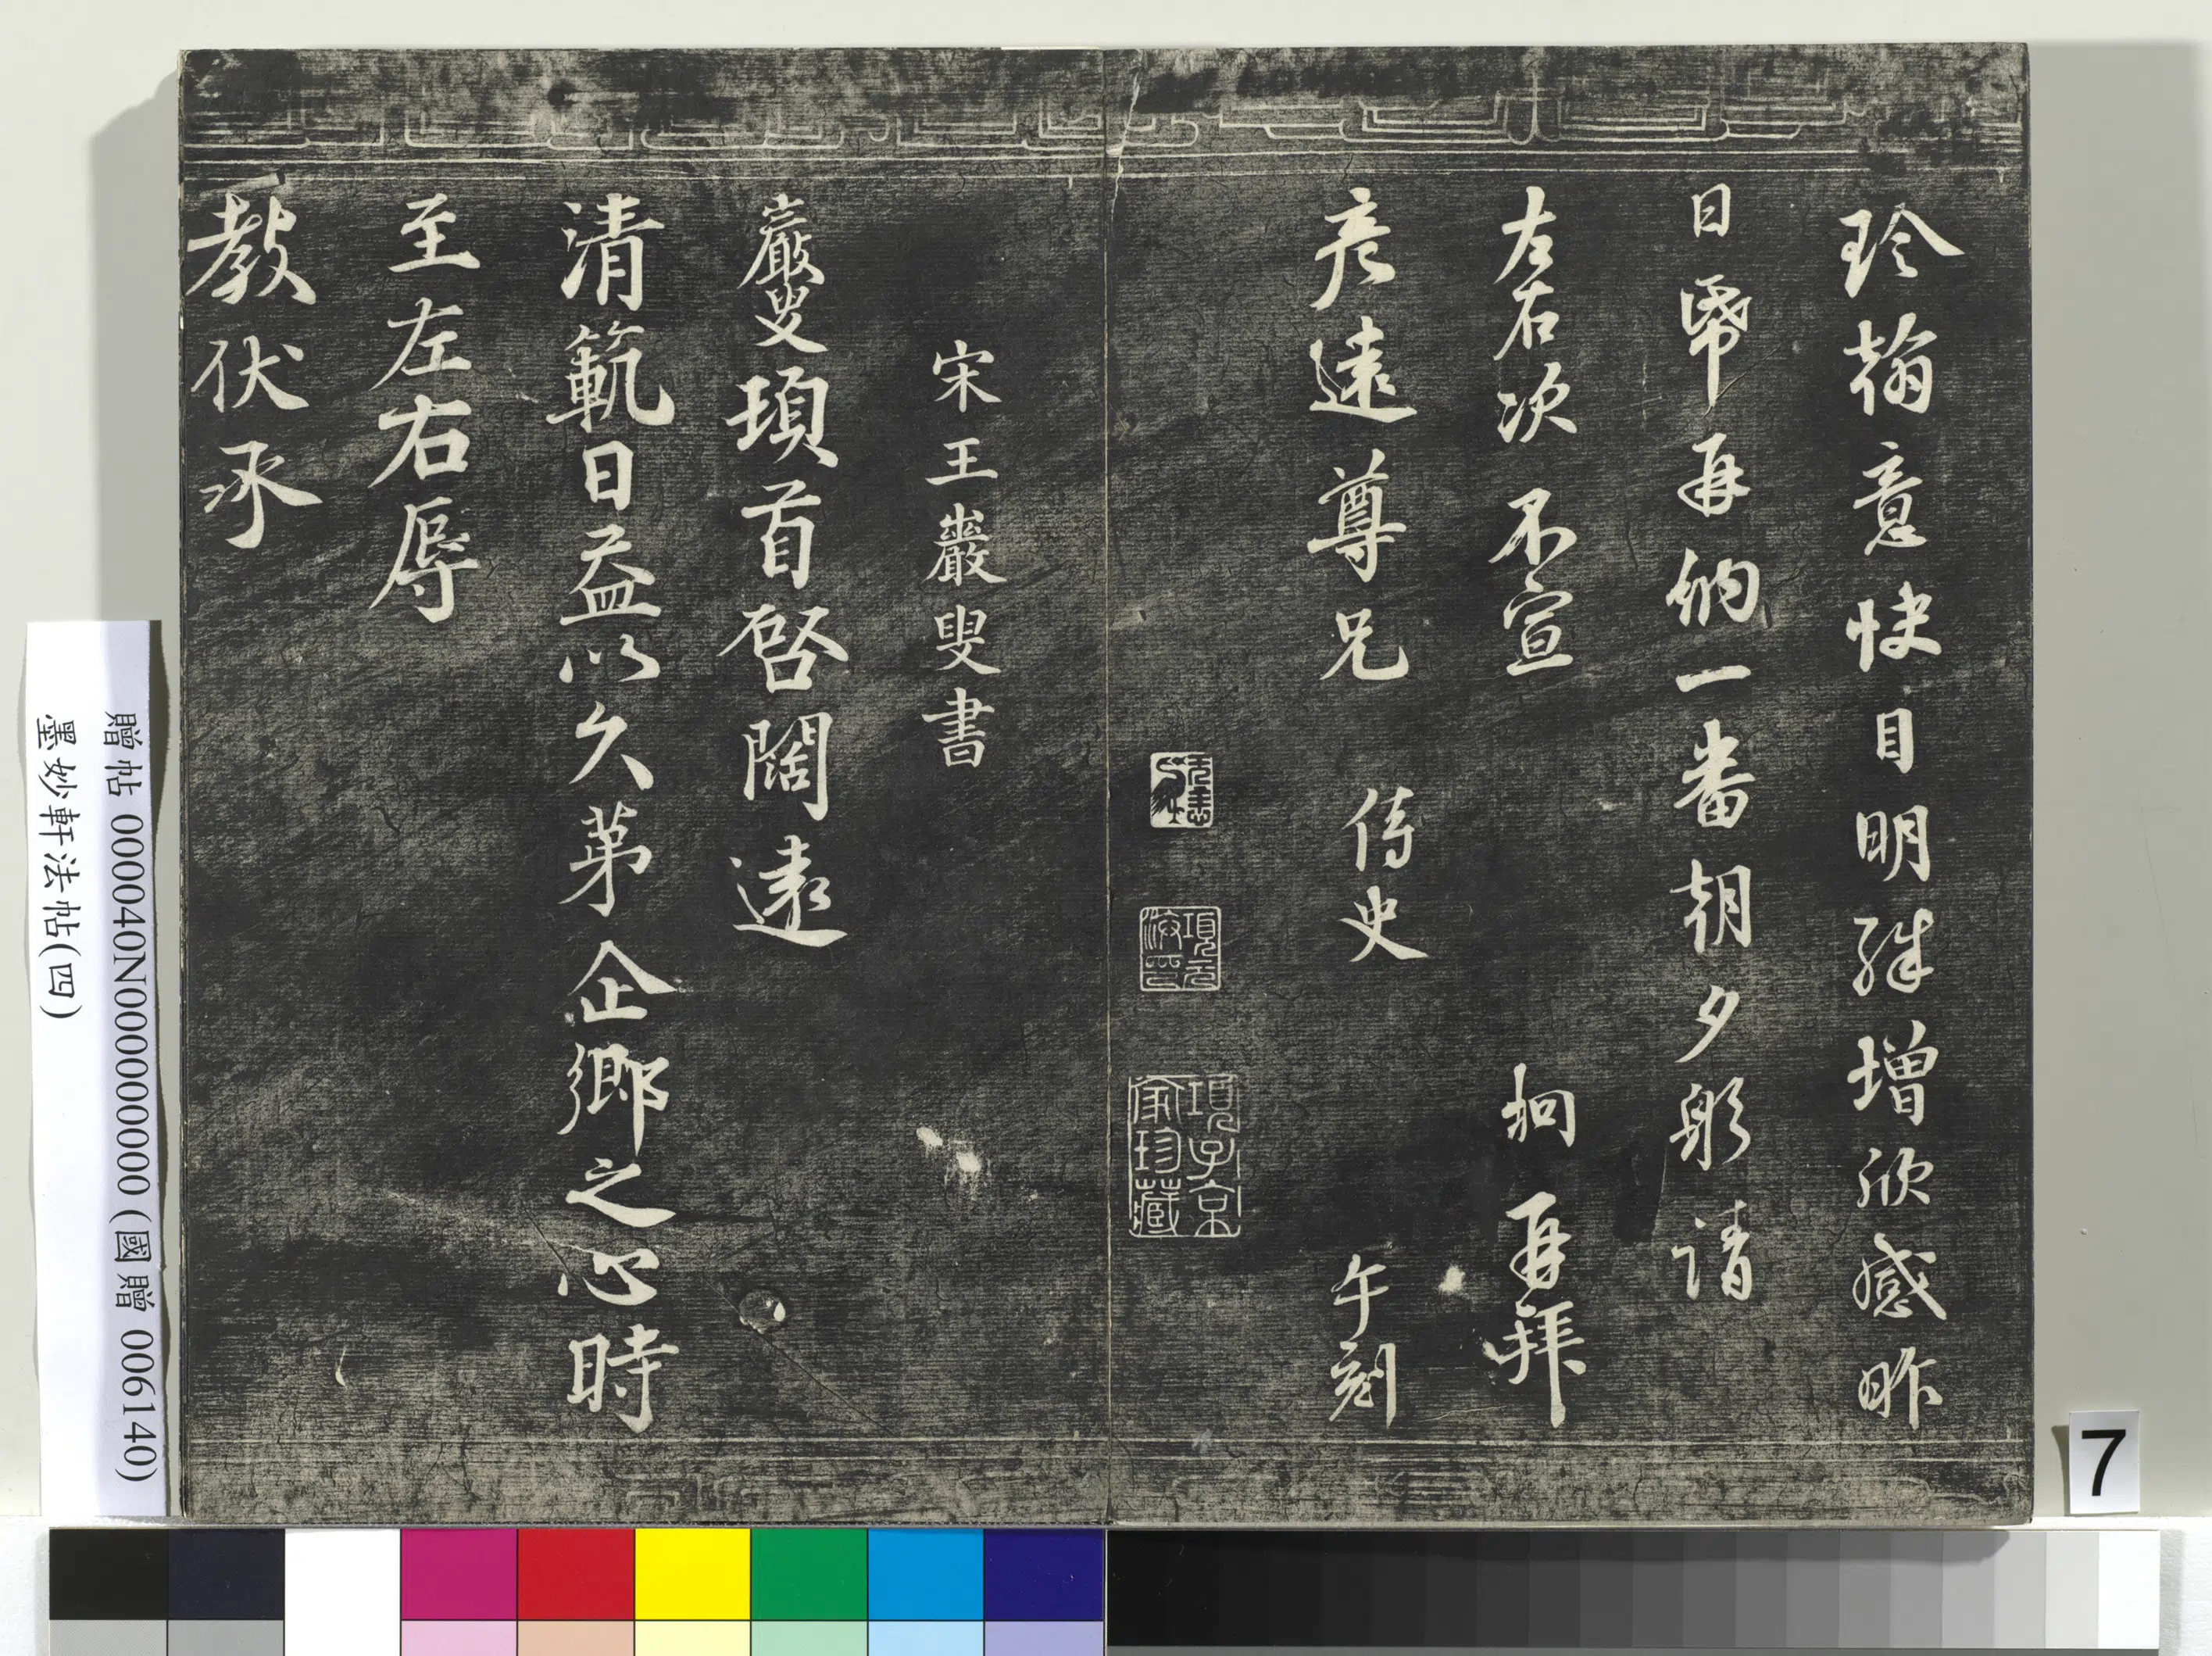 珍翰意快目明殊增欣感昨
日帋再納一番朝夕躬請
左右次不宣 坰再拜
彥遠尊兄 侍史 午刻
項元汴印
項子京家珍藏
宋王巖叟書
巖叟頓首啓闊遠
清範日益以久第企鄉之心時
至左右辱
教伏承
贈帖 000040N000000000 (國贈 006140)
墨妙軒法帖(四)
7